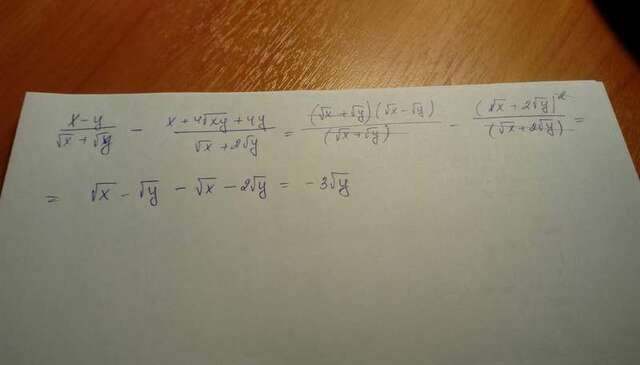 (x-y)/(√x+√y) - (x+4√xy+4y)/(√x+2√y) = ((√x+√y)(√x-√y))/((√x+√y)) - (√x+2√y)²/(√x+2√y) =
= √x - √y - √x - 2√y = -3√y